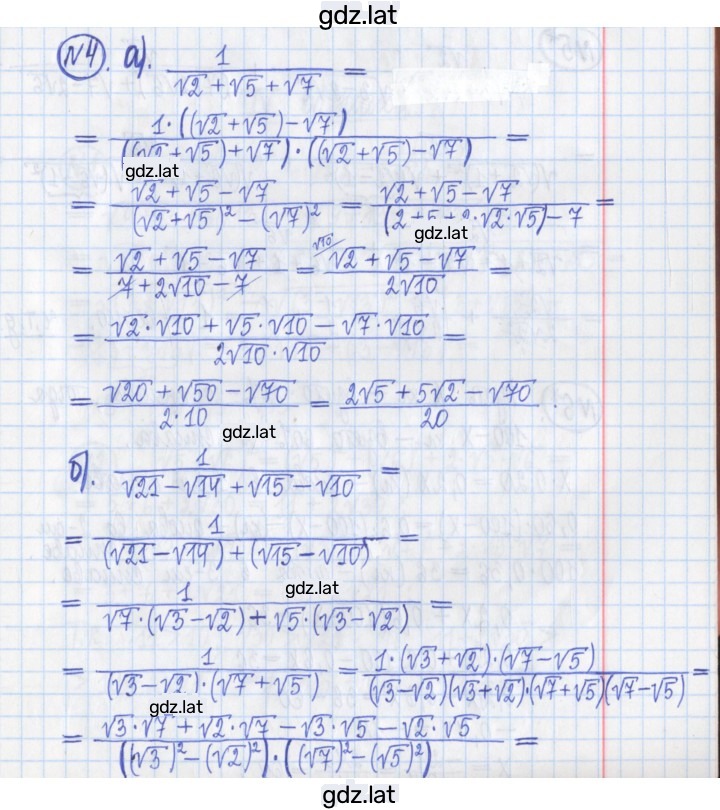 gdz.lat
№4. а). 1/(√2 + √5 + √7) =
= 1·((√2 + √5) − √7)/(((√2 + √5) + √7)·((√2 + √5) − √7)) =
gdz.lat
= (√2 + √5 − √7)/((√2 + √5)² − (√7)²) = (√2 + √5 − √7)/((2 + 5 + 2·√2·√5) − 7) =
gdz.lat
= (√2 + √5 − √7)/(7 + 2√10 − 7) = √10/ (√2 + √5 − √7)/(2√10) =
= (√2·√10 + √5·√10 − √7·√10)/(2√10·√10) =
= (√20 + √50 − √70)/(2·10) = (2√5 + 5√2 − √70)/20.
gdz.lat
б). 1/(√21 − √14 + √15 − √10) =
= 1/((√21 − √14) + (√15 − √10)) =
gdz.lat
= 1/(√7·(√3 − √2) + √5·(√3 − √2)) =
= 1/((√3 − √2)·(√7 + √5)) = 1·(√3 + √2)·(√7 − √5)/((√3 − √2)(√3 + √2)·(√7 + √5)(√7 − √5)) =
gdz.lat
= (√3·√7 + √2·√7 − √3·√5 − √2·√5)/(((√3)² − (√2)²)·((√7)² − (√5)²)) =
gdz.lat